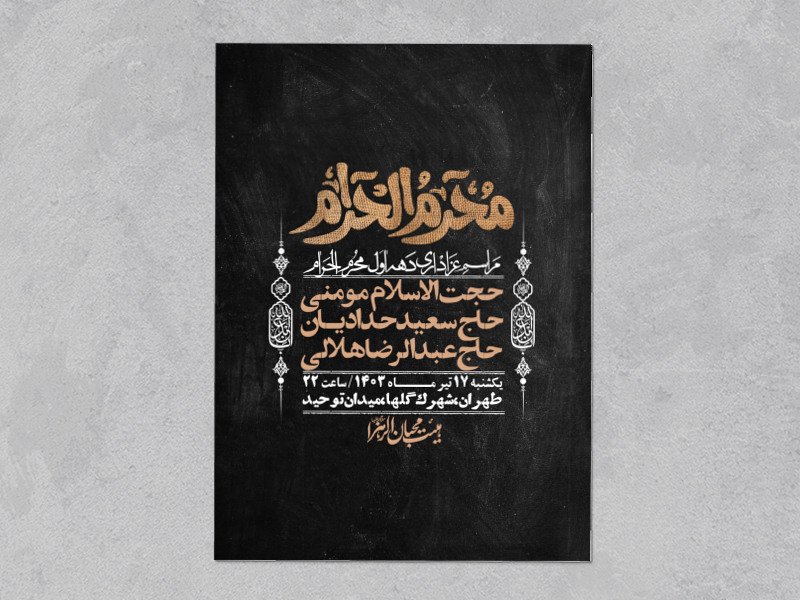 محرم الحرام
مراسم عزاداری دهه اول محرم الحرام
حجت الاسلام مومنی
حاج سعید حدادیان
حاج عبدالرضا هلالی
یکشنبه ۱۷ تیر مــاه ۱۴۰۳ / ساعت ۲۲
طهران، شهرک گلها، میدان توحید
هیئت محبان الزهرا